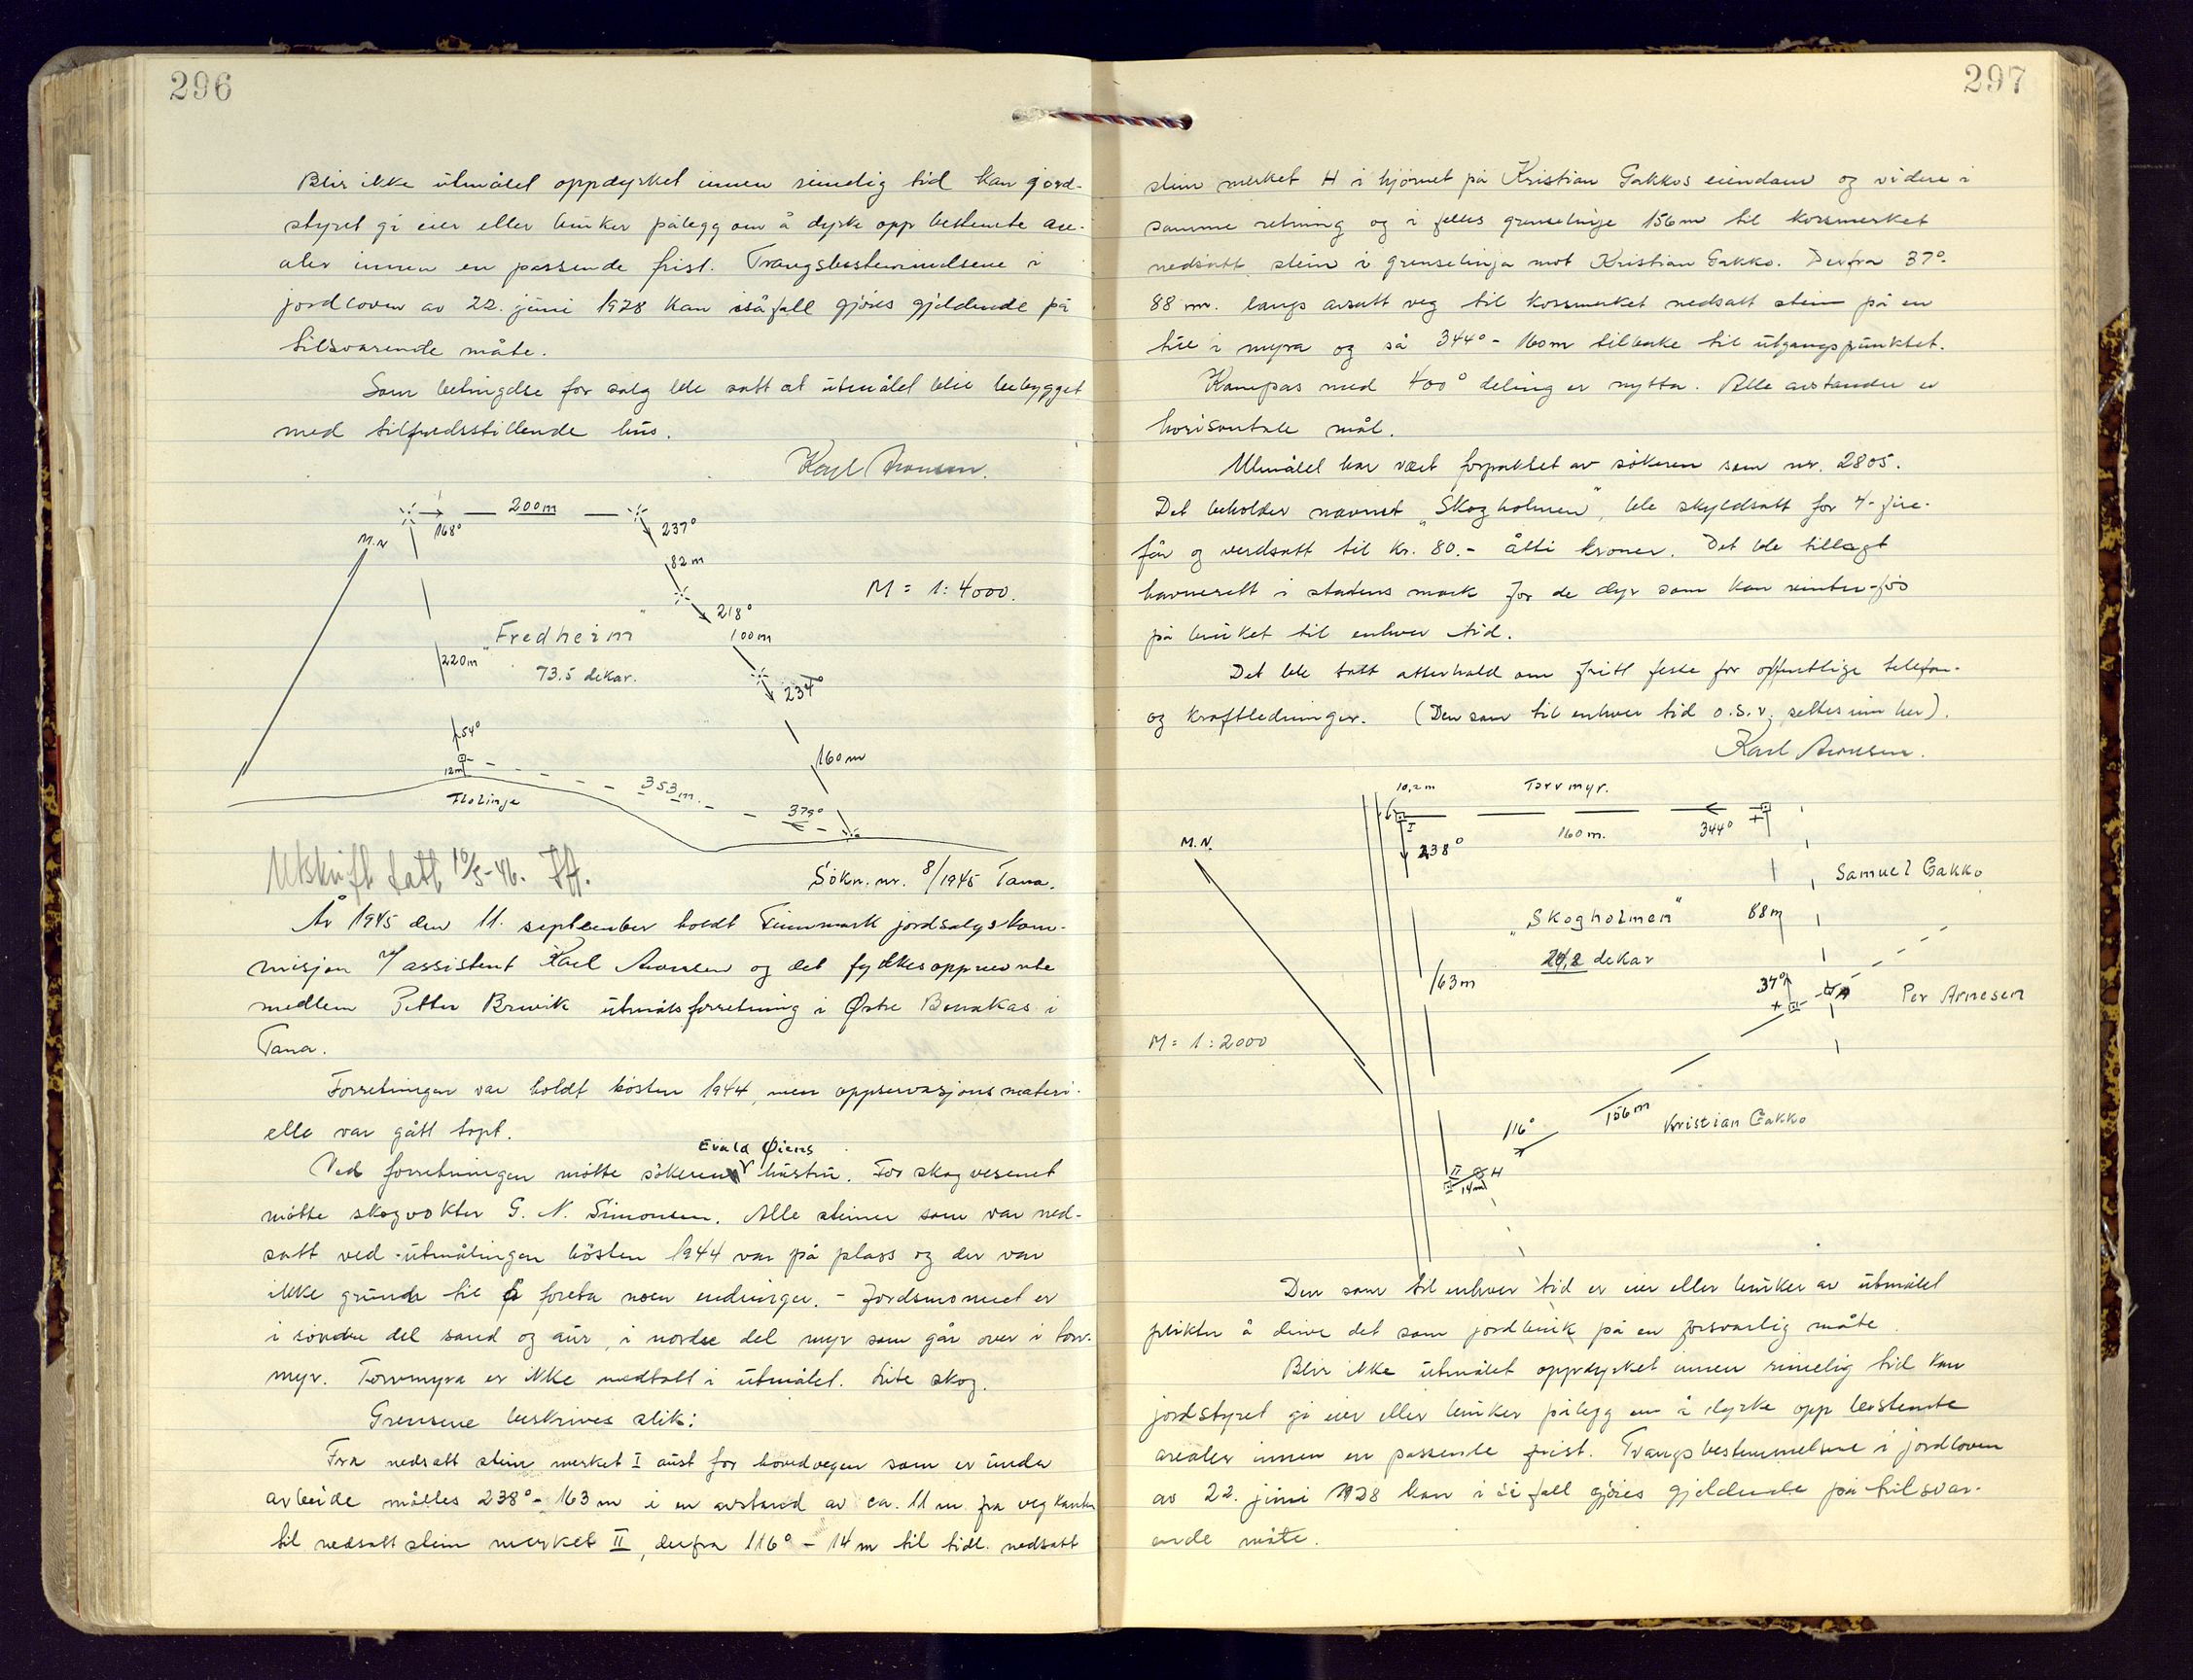 296
Blir ikke utmålet oppdyrket innen rimelig tid kan jord-
styret gi eier eller bruker pålegg om å dyrke opp bestemte are-
aler innen en passende frist. Trangsbestemmelsene i
jordloven av 22. juni 1928 kan isåfall gjøres gjeldende på
tilsvarende måte.
Som betingelse for salg ble satt at utmålet blir bebygget
med tilfredsstillende hus.
Karl Aronsen.
200m
168°
237°
M.N
82m
M = 1:4000.
218°
100m
"Fredheim"
220m
73,5 dekar.
234°
54°
12m
160m
353m.
Flolinje
375°
Utskrift tatt 10/5-46.
Søkn. nr. 8/1945 Tana.
År 1945 den 11. september holdt Finnmark jordsalgskom-
misjon v/ assistent Karl Aronsen og det fylkesoppnevnte
medlem Petter Brevik utmålsforretning i Østre Bonakas i
Tana.
Forretningen var holdt høsten 1944, men oppservasjonsmateri-
elle var gått tapt.
Evald Øiens
Ved forretningen møtte søkeren hustru. For skogvesenet
møtte skogvokter G. N. Simonsen. Alle steiner som var ned-
satt ved utmålingen høsten 1944 var på plass og der var
ikke grunn til å foreta noen endringer. - Jordsmonnet er
i søndre del sand og aur, i nordre del myr som går over i torv-
myr. Torvmyra er ikke medtatt i utmålet. Lite skog.
Grensene beskrives slik:
Fra nedsatt stein merket I aust for hovedvegen som er under
arbeide måltes 238° - 163 m i en avstand av ca. 11 m. fra vegkanten
til nedsatt stein merket II, derfra 116° - 14 m til tidl. nedsatt
297
stein merket H i hjørnet på Kristian Gakkos eiendom og videre i
samme retning og i felles grenselinje 156m til korsmerket
nedsatt stein i grenselinja mot Kristian Gakko. Derfra 37°-
88 m. langs avsatt veg til korsmerket nedsatt stein på en
tue i myra og så 344° - 160m tilbake til utgangspunktet.
Kompas med 400° deling er nytta. Alle avstander er
horisontale mål.
Utmålet har vært forpaktet av søkeren som nr. 2805.
Det beholder navnet "Skogholmen", ble skyldsatt for 4- fire-
øre og verdsatt til kr. 80.- åtti kroner. Det ble tillagt
havnerett i statens mark for de dyr som kan vinter-fôs
på bruket til enhver tid.
Det ble tatt atterhald om fritt feste for offentlige telefon-
og kraftledninger. (Den som til enhver tid o.s.v. settes inn her).
Karl Aronsen.
10,2 m
Torvmyr.
I
M.N.
160m.
344°
238°
Samuel Gakko
"Skogholmen"
88m
dekar
163m
37°
H
Per Arnesen
M = 1:2000
156m
116°
Kristian Gakko
II
H
14m
Den som til enhver tid er eier eller bruker av utmålet
plikter å drive det som jordbruk på en forsvarlig måte.
Blir ikke utmålet oppdyrket innen rimelig tid kan
jordstyret gi eier eller bruker pålegg om å dyrke opp bestemte
arealer innen en passende frist. Trangsbestemmelsene i jordloven
av 22. juni 1928 kan i så fall gjøres gjeldende på tilsvar-
ende måte.